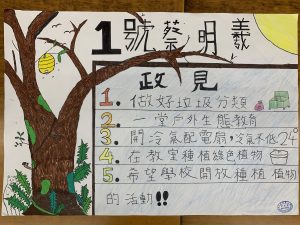 1號蔡明義
政見
1. 做好垃圾分類
2. 一堂戶外生態教育
3. 開冷氣配電扇，冷氣不低24
4. 在教室種植綠色植物
5. 希望學校開放種植植物
的活動!!